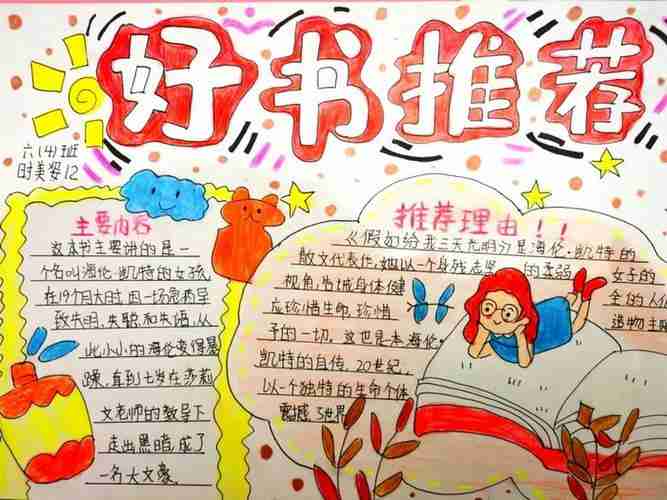 好书推荐
六(4)班
时美姿12
主要内容
这本书主要讲的是一
个名叫海伦·凯特的女孩,
在19个月大时因一场急病导
致失明、失聪和失语,从
此小小的海伦变得暴
躁,直到七岁在莎莉
文老师的教导下
走出黑暗,成了
一名大文豪.
推荐理由!!
《假如给我三天光明》是海伦·凯特的
散文代表作,她以一个身残志坚 的柔弱 女子的
视角,告诫身体健 全的人们
应珍惜生命,珍惜 造物主
予的一切。这也是本海伦·
凯特的自传。20世纪,
以一个独特的生命个体
震撼 3世界